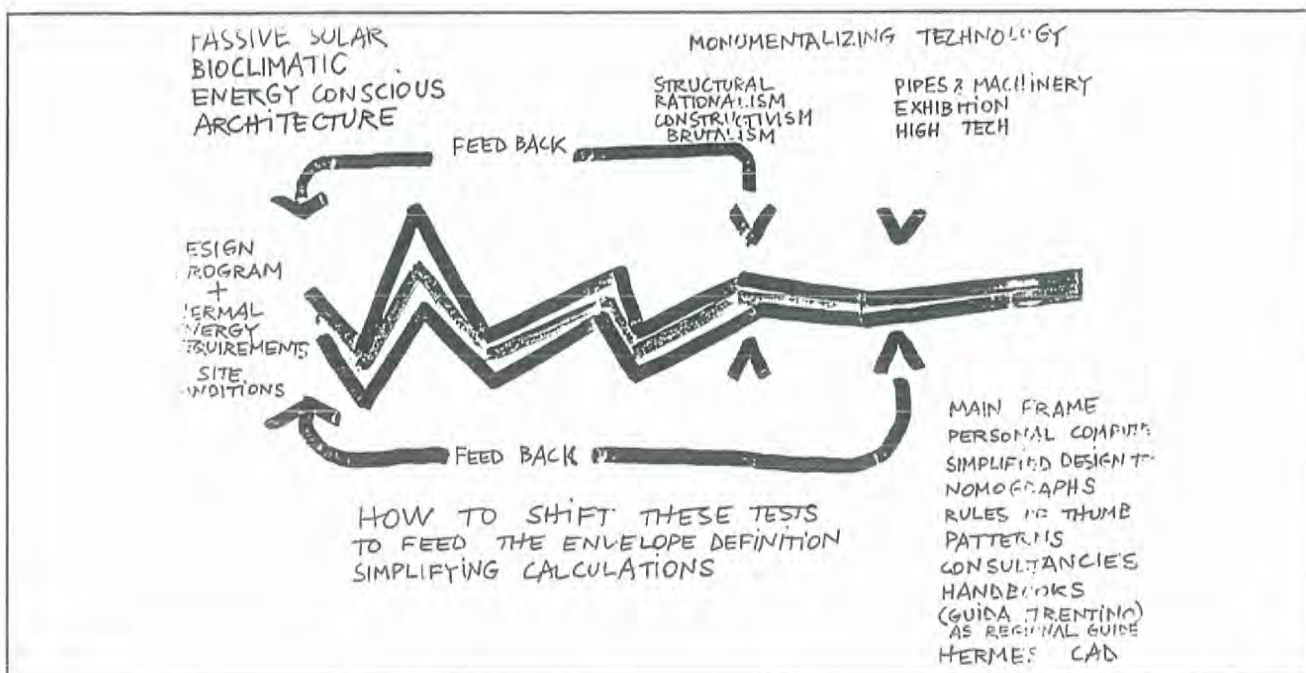 PASSIVE SOLAR
BIOCLIMATIC
ENERGY CONSCIOUS
ARCHITECTURE
MONUMENTALIZING TECHNOLOGY
STRUCTURAL
RATIONALISM
CONSTRUCTIVISM
BRUTALISM
PIPES & MACHINERY
EXHIBITION
HIGH TECH
FEED BACK
ESIGN
ROGRAM
+
ERMAL
NERGY
QUIREMENTS
SITE
NDITIONS
FEED BACK
HOW TO SHIFT THESE TESTS
TO FEED THE ENVELOPE DEFINITION
SIMPLIFYING CALCULATIONS
MAIN FRAME
PERSONAL COMPUTE
SIMPLIFIED DESIGN
NOMOGRAPHS
RULES OF THUMB
PATTERNS
CONSULTANCIES
HANDBOOKS
(GUIDA TRENTINO)
AS REGIONAL GUIDE
HERMES CAD